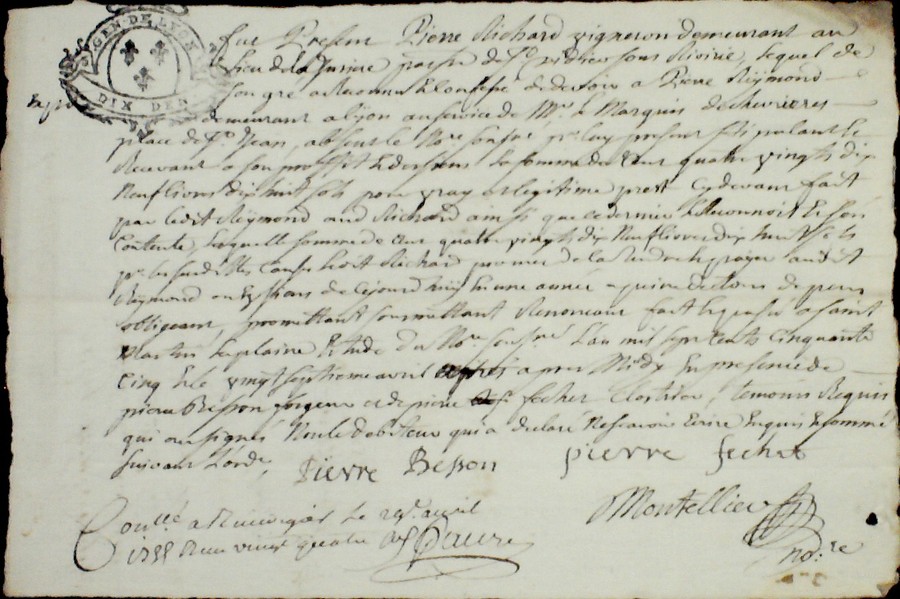 GEN. DE LYON
DIX DEN
Fut Present Pierre Richard vigneron demeurant au
lieu de la paroisse de St sous Rivirie, lequel de
son gré a Reconnu & Confessé de devoir a Pierre Reymond
demeurant a lyon au service de Mr le Marquis de chevrieres
place de St Jean, absent le Nore soussé pr luy present stipulant &
Recevant a son proffit & des siens la somme de Cent quatre vingts dix
Neuf livres dix huit sols pour vray & legitime prest cy devant fait
par ledit Reymond aud Richard ainsi que ce dernier le Reconnoit &
Contente laquelle somme de Cent quatre vingts dix Neuf livres dix huit sols
pr les susdittes Causes led Richard promet de la Rendre & payer audit
Reymond ou Es siens de cejourd'huy En une année a peine de tous depens
obligeant, promettant soumettant Renonceant fait & passé a saint
Martin la plaine Etude du Nore soussné L'an mil sept cents cinquante
cinq & le vingt septieme avril apres Midy En presence de
pierre Besson et de pierre fechet temoins Requis
qui ont signés Non le debiteur qui a declaré Ne scavoir Ecrire Enquis & sommé
suivant L'orde.
Pierre Besson pierre fechet
Montellier
nore
Conllé a le avril
1755 Reçu vingt quatre